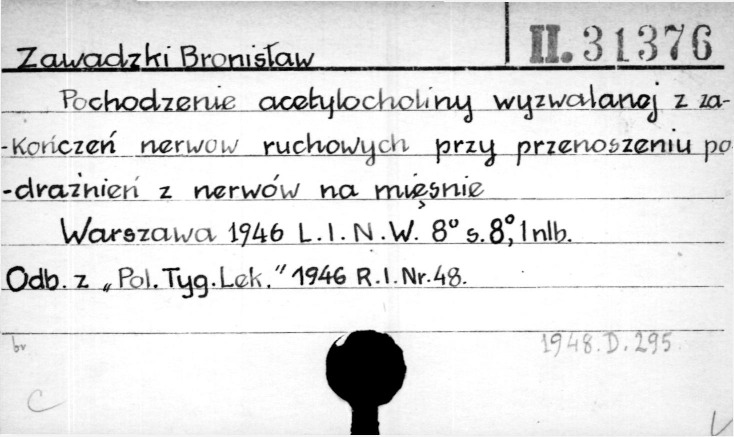 Zawadzki Bronisław II. 31376
Pochodzenie acetylocholiny wyzwalanej z za-
-kończeń nerwow ruchowych przy przenoszeniu po
-drażnień z nerwów na mięsnie
Warszawa 1946 L.I.N.W. 8° s. 8°, 1 nlb.
Odb. z „Pol. Tyg. Lek." 1946 R.I. Nr. 48.
br 1948.D.295.
C
V